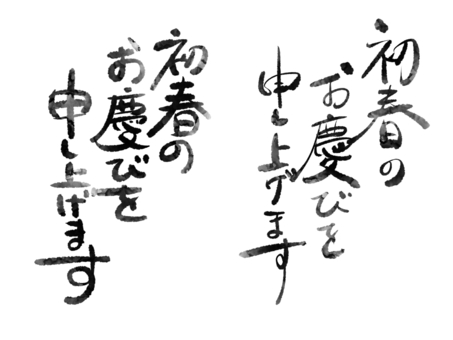 初春の
お慶びを
申し上げます
初春の
お慶びを
申し上げます